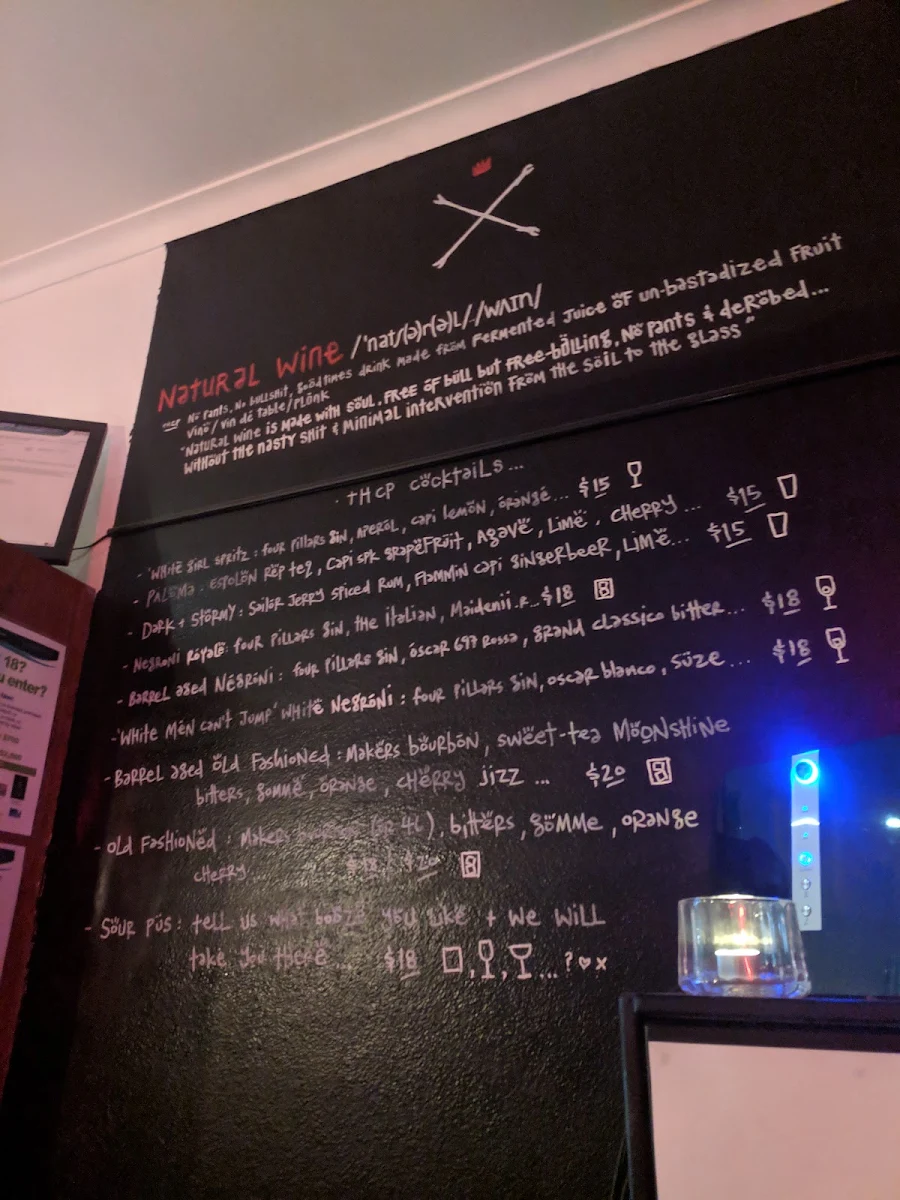 NatURal Wine /'natʃ(ə)r(ə)l//wʌɪn/
No Pants, No bullshit, goodtimes drink made from Fermented Juice OF un-bastadized Fruit
vino/ vin de table/Plonk
"Natural Wine is made with soul. FREE OF bull but FREE-balling. No Pants & deRobed...
without the nasty shit & minimal intervention From the soil to the glass"
tHCP Cocktails...
- 'White Girl Spritz : four Pillars Gin, Aperol, Capi lemon, orange... $15
- Paloma : Espolon Rep teq, Capi spk grapefruit, Agave, Lime, Cherry... $15
- Dark + Stormy : Sailor Jerry spiced Rum, Flammin Capi Gingerbeer, Lime... $15
- Negroni Royale : four Pillars Gin, the Italian, Maidenii.. $18
- Barrel aged Negroni : four Pillars Gin, oscar 697 Rosso, grand classico bitter... $18
- 'White Men Can't Jump' White Negroni : four Pillars Gin, oscar blanco, Suze... $18
- Barrel aged Old Fashioned : Makers bourbon, sweet-tea Moonshine
bitters, gomme, orange, cherry jizz ... $20
- Old Fashioned : Makers (or 46), bitters, gomme, orange
cherry... $18 / $20
- Sour Pus : tell us what booze you like + we will
take you there... $18 , , ...? ♡ x
18?
enter?